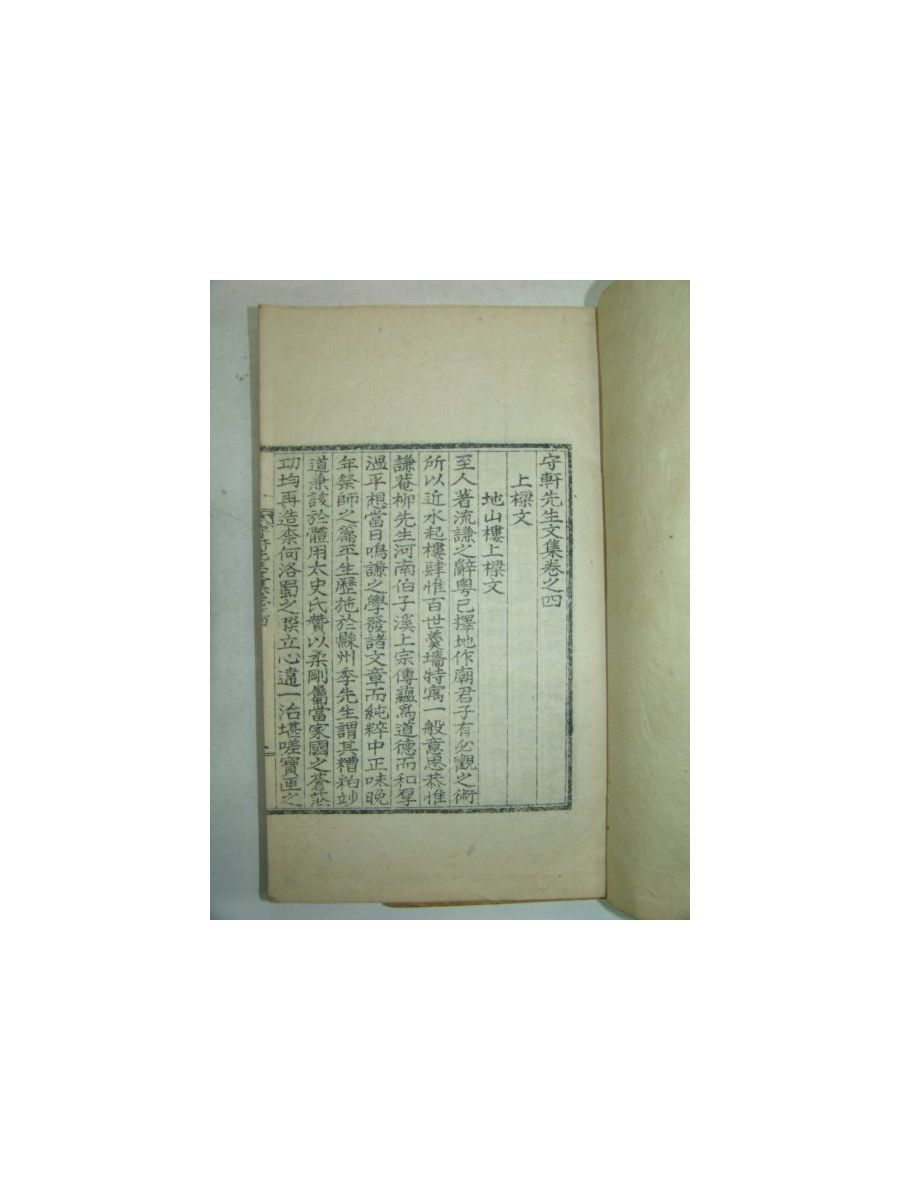 守軒先生文集卷之四
上樑文
地山樓上樑文
至人著流謙之辭粤已擇地作廟君子有必觀之術
所以近水起樓肆惟百世羹墻特寓一般意思恭惟
謙菴柳先生河南伯子溪上宗傳蘊爲道德而和厚
溫平想當日鳴謙之學發諸文章而純粹中正味晩
年祭師之篇平生歷施於縣州季先生謂其糟粕竗
道兼該於體用太史氏贊以柔剛屬當家國之蒼茫
功均再造柰何洛蜀之潰立心違一治堪嗟寶匣之